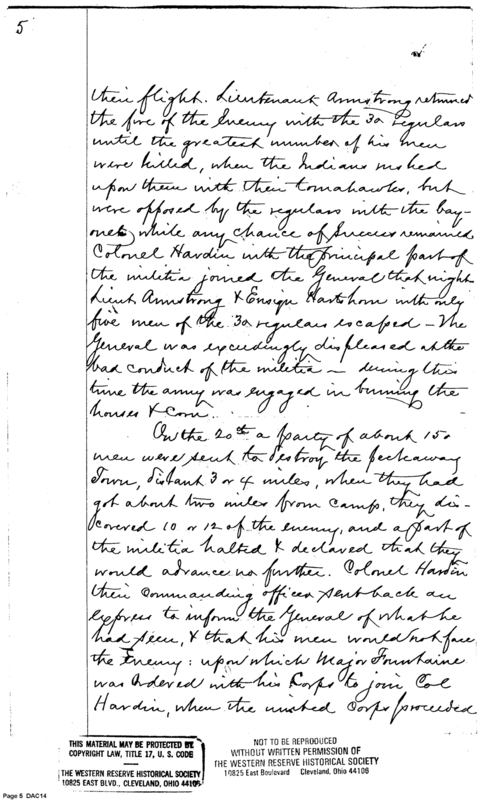 5
their flight. Lieutenant Armstrong returned
the fire of the Enemy with the 30 Regulars
until the greatest number of his men
were killed, when the Indians rushed
upon them with their tomahawks, but
were opposed by the regulars with the bay-
onets, while any chance of Success remained
Colonel Hardin with the principal part of
the militia joined the General that night
Lieut Armstrong & Ensign Hartshorn with only
five men of the 30 regulars escaped – The
General was exceedingly displeased at the
bad conduct of the militia – during this
time the army was engaged in burning the
houses & Corn.
On the 20th a party of about 150
men were sent to destroy the Peckaway
Town, distant 3 or 4 miles, when they had
got about two miles from camp, they dis-
covered 10 or 12 of the enemy, and a part of
the militia halted & declared that they
would advance no further. Colonel Hardin
their Commanding officer sent back an
express to inform the General of what he
had seen, & that his men would not face
the Enemy: upon which Major Fountaine
was ordered with his Corps to join Col
Hardin, when the united Corps proceeded
THIS MATERIAL MAY BE PROTECTED BY
COPYRIGHT LAW, TITLE 17, U. S. CODE
THE WESTERN RESERVE HISTORICAL SOCIETY
10825 EAST BLVD., CLEVELAND, OHIO 44106
NOT TO BE REPRODUCED
WITHOUT WRITTEN PERMISSION OF
THE WESTERN RESERVE HISTORICAL SOCIETY
10825 East Boulevard Cleveland, Ohio 44106
Page 5 DAC14